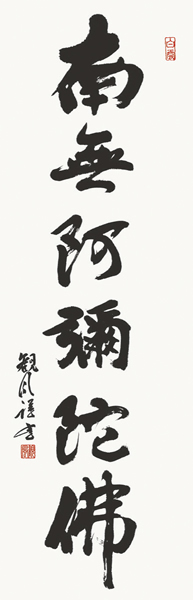 南無阿彌陀佛
觀月謹書